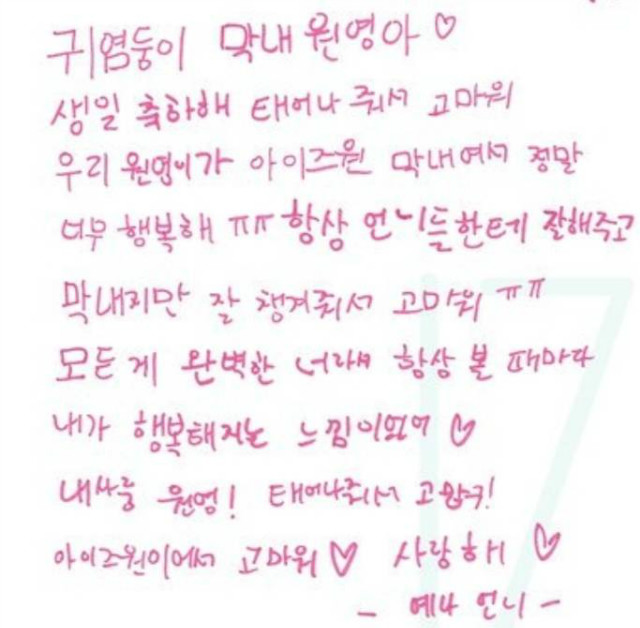 귀염둥이 막내 원영아 ♡
생일 축하해 태어나 줘서 고마워
우리 원영이가 아이즈원 막내여서 정말
너무 행복해 ㅠㅠ 항상 언니들한테 잘해주고
막내지만 잘 챙겨줘서 고마워 ㅠㅠ
모든게 완벽한 너라서 항상 볼 때마다
내가 행복해지는 느낌이었어 ♡
내사랑 원영! 태어나줘서 고맙구!
아이즈원이어서 고마워 ♡ 사랑해 ♡
- 예나 언니 -
17